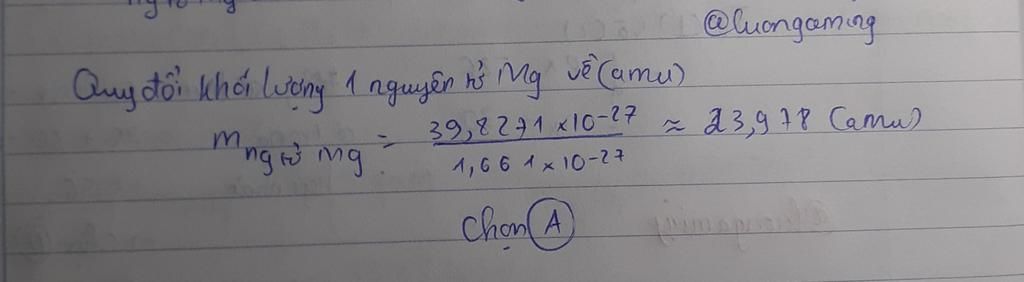 @luongaming
Quy đổi khối lượng 1 nguyên tử Mg về (amu)
m ng tử Mg = 39,8271 x 10-27 / 1,661 x 10-27 ≈ 23,978 (amu)
Chọn A